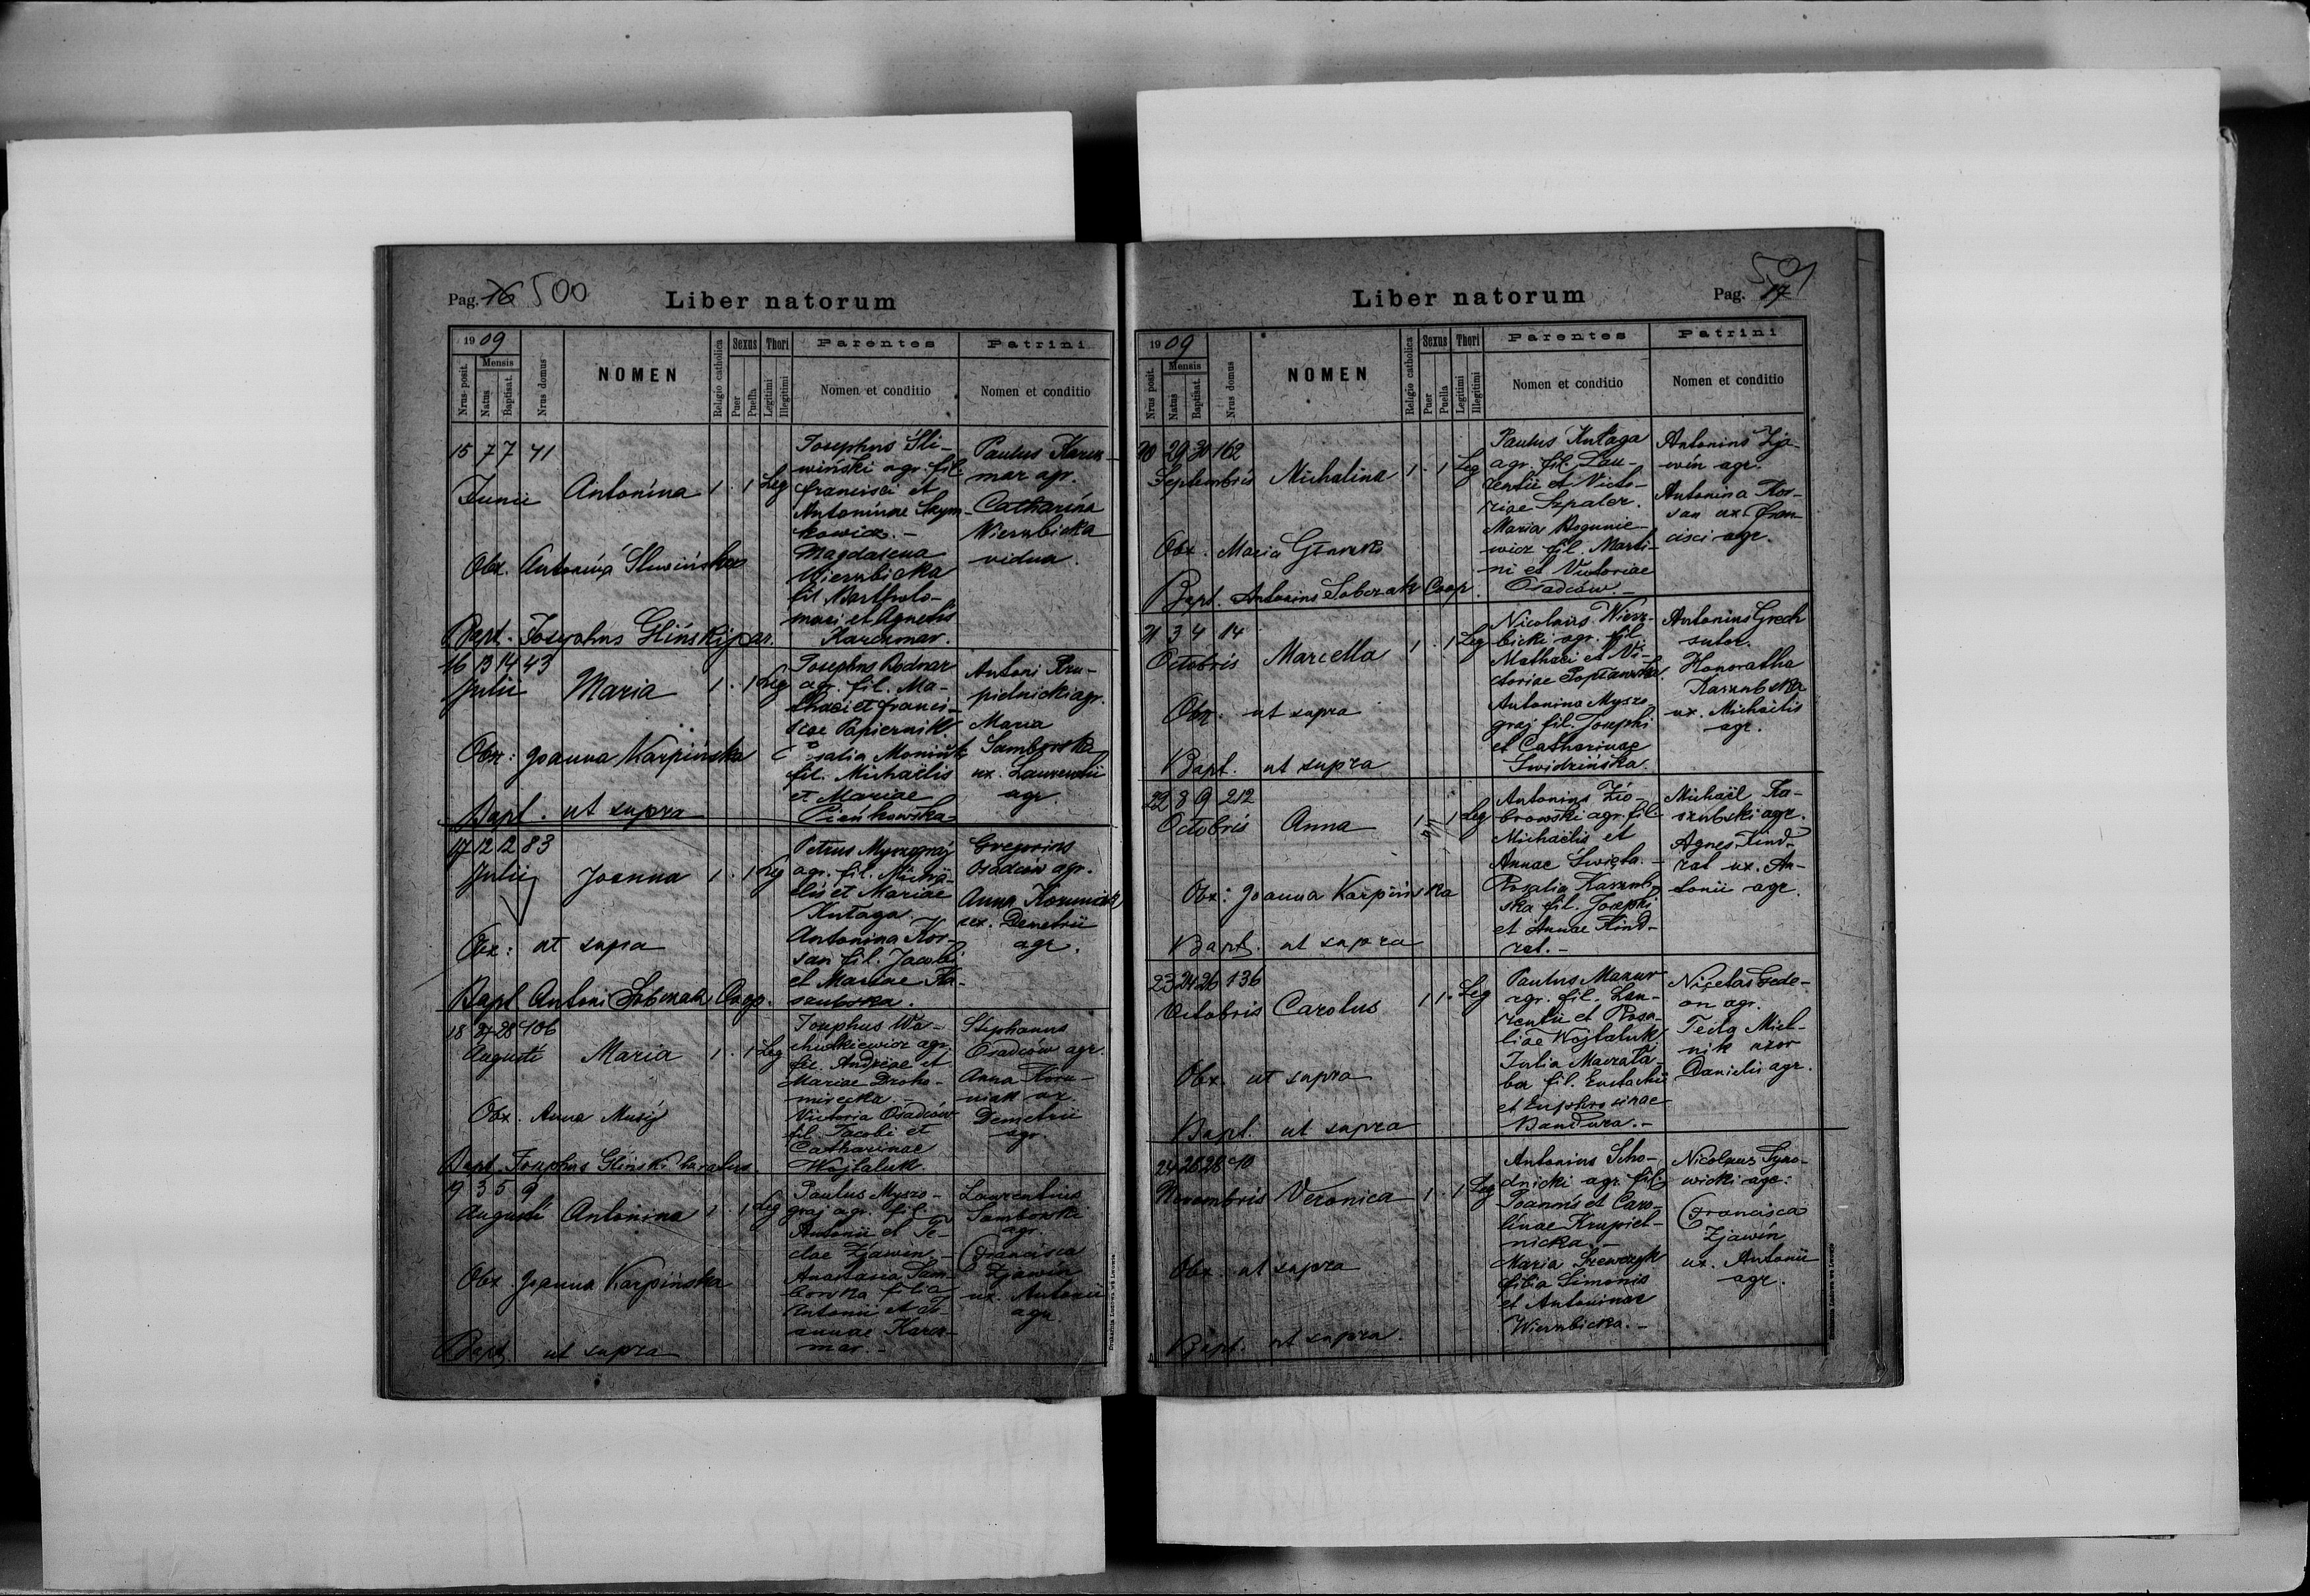 Pag. 16 500
Liber natorum
1909
Nrus posit.
Mensis
Natus
Baptisat.
Nrus domus
NOMEN
Religio catholica
Sexus
Puer
Puella
Thori
Legitimi
Illegitimi
Parentes
Nomen et conditio
Patrini
Nomen et conditio
15 7 7 41
Junii Antonina 1 . 1 Leg
Obx. Antonina Sliwińska
Bapt. Josephus Gliński par.
Josephus Śli-
wiński agr. fil.
Francisci et
Antoninae Szym-
kowicz. -
Magdalena
Wierzbicka
fil. Bartholo-
maei et Agnetis
Karczmar.
Paulus Karcz-
mar agr.
Catharina
Wierzbicka
vidua.
16 13 14 43
Julii Maria 1 . 1 Leg
Obx: Joanna Karpińska
Bapt. ut supra
Josephus Bodnar
agr. fil. Ma-
thaei et Franci-
scae Papiernik.
fil. Michaëlis
et Mariae
Pieńkowska
Antoni Kru-
pielnicki agr.
Maria
Samborska
ux. Laurentii
agr.
17 12 12 83
Julii Joanna 1 . 1 Leg
Obx: ut supra
Bapt. Antoni Sobczak Coop.
Petrus Myszograj
agr. fil. Michaë-
lis et Mariae
Kułaga.
Antonina Kor-
san fil. Jacobi
et Mariae Ka-
szubska.
Gregorius
Osadców agr.
Anna
ux. Demetrii
agr.
18 27 28 106
Augusti Maria 1 . 1 Leg
Obx. Anna Musij
Bapt. Josephus Gliński Curatus.
Josephus Wo-
agr.
fil. Andreae et
Mariae Droho-
mirecka. -
Victoria Osadców
fil. Jacobi et
Catharinae
Wojtaluk.
Stephanus
Osadców agr.
Anna
ux.
Demetrii
agr.
19 3 5 9
Augusti Antonina 1 . 1 Leg
Obx. Joanna Karpińska
Bapt. ut supra
Paulus Myszo-
graj agr. fil.
Antonii et Te-
clae Zjawin. -
Anastasia Sam-
borska filia
Antonii et Jo-
annae Karcz-
mar. -
Laurentius
Samborski
agr.
Francisca
Zjawin
ux. Antonii
agr.
Drukarnia Ludowa we Lwowie
501
Liber natorum
Pag. 17
1909
Nrus posit.
Mensis
Natus
Baptisat.
Nrus domus
NOMEN
Religio catholica
Sexus
Puer
Puella
Thori
Legitimi
Illegitimi
Parentes
Nomen et conditio
Patrini
Nomen et conditio
20 29 30 162
Septembris Michalina 1 . 1 Leg
Obx. Maria
Bapt. Antonius Sobczak Coop.
Paulus Kułaga
agr. fil. Lau-
rentii et Victo-
riae Szpaler.
Maria Bogunie-
wicz fil. Marti-
ni et Victoriae
Osadców. -
Antonius Zja-
win agr.
Antonina Kor-
san ux. Fran-
cisci agr.
21 3 4 14
Octobris Marcella 1 . 1 Leg
Obx: ut supra
Bapt. ut supra
Nicolaus Wierz-
bicki agr. fil.
Mathaei et Vi-
ctoriae Popławska.
Antonina Myszo-
graj fil. Josephi
et Catharinae
Swidzińska.
Antonius Grech
sutor.
Honoratha
Kaszubska
ux. Michaëlis
agr.
22 8 9 212
Octobris Anna 1 . 1 Leg
Obx: Joanna Karpińska
Bapt. ut supra
Antonius Zio-
browski agr. fil.
Michaëlis et
Annae Święta. -
Rosalia Kaszub-
ska fil. Josephi
et Annae Kind-
rat. -
Michaël Ka-
szubski agr.
Agnes Kind-
rat ux. An-
tonii agr.
23 24 26 136
Octobris Carolus 1 1 . Leg
Obx. ut supra
Bapt. ut supra
Paulus Mazur
agr. fil. Lau-
rentii et Rosa-
liae Wojtaluk.
Julia
fil. Eustachii
et Euphrosinae
Bandura. -
Nicetas Gede-
on agr.
Tecla Miel-
nik uxor
Danielis agr.
24 28 28 40
Novembris Veronica 1 . 1 Leg
Obx. ut supra
Bapt. ut supra.
Antonius Scho-
dnicki agr. fil.
Joannis et Caro-
linae Krupiel-
nicka. -
Maria Szewczyk
filia Simonis
et Antoninae
Wierzbicka. -
Nicolaus Syno-
wicki agr.
Francisca
Zjawin
ux. Antonii
agr.
Drukarnia Ludowa we Lwowie